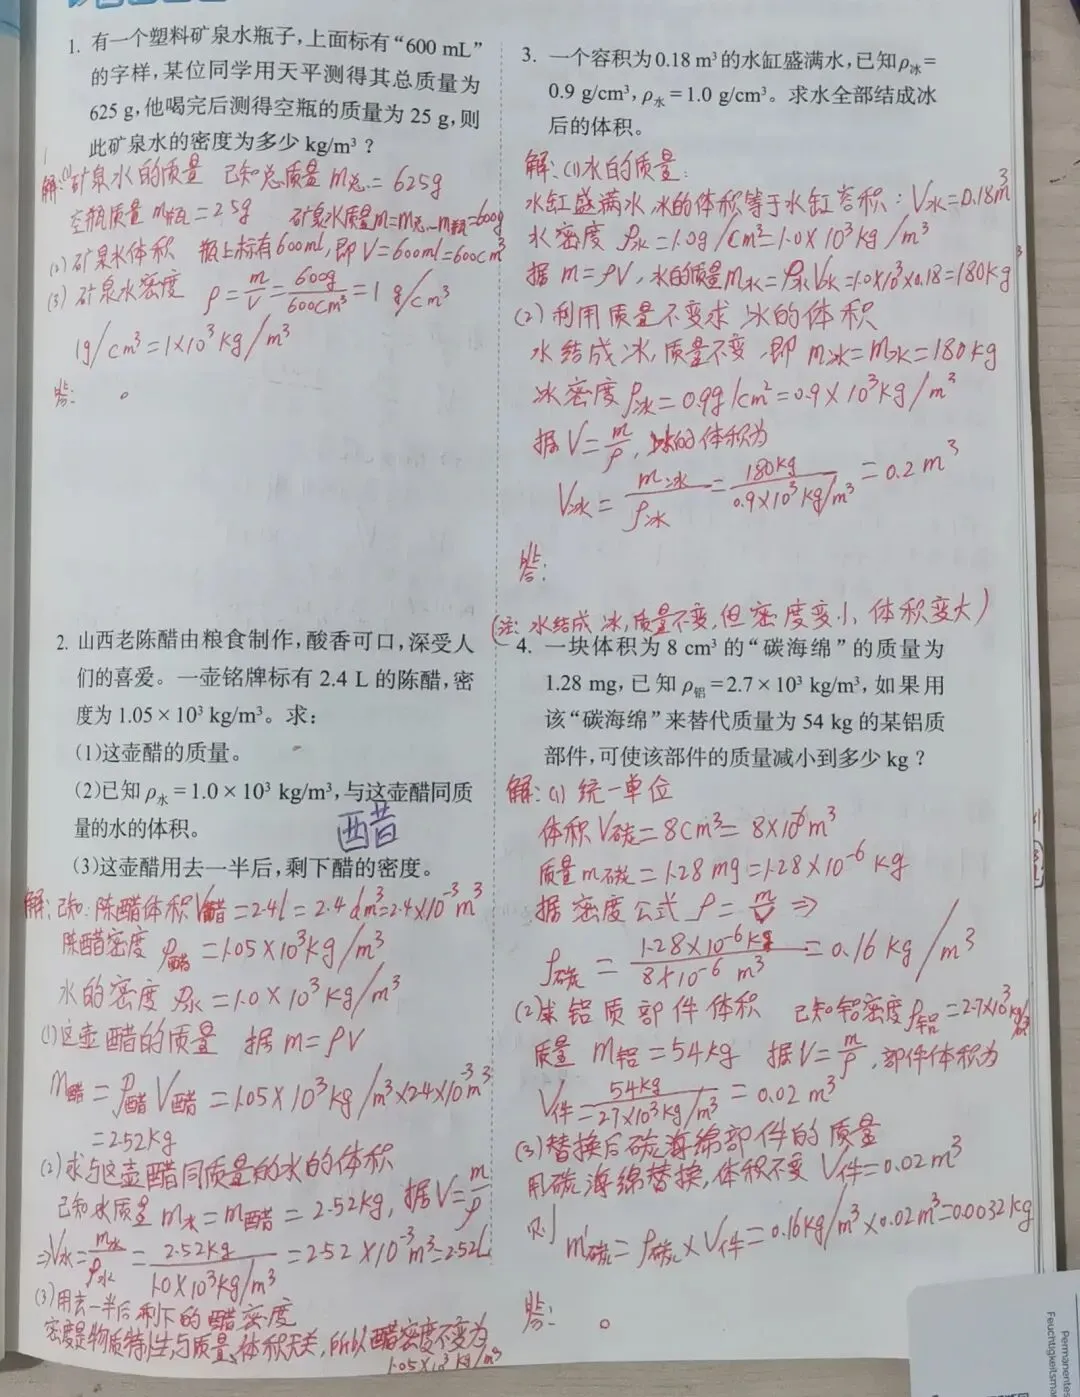 1. 有一个塑料矿泉水瓶子,上面标有“600 mL”
的字样,某位同学用天平测得其总质量为
625 g,他喝完后测得空瓶的质量为 25 g,则
此矿泉水的密度为多少 kg/m³？
解:(1)矿泉水的质量 已知总质量 m总=625g
空瓶质量 m瓶=25g 矿泉水质量m=m总-m瓶=600g
(2)矿泉水体积 瓶上标有600ml,即V=600ml=600cm³
(3)矿泉水密度 ρ=m/V=600g/600cm³=1 g/cm³
1g/cm³=1×10³kg/m³
答: 。
2. 山西老陈醋由粮食制作,酸香可口,深受人
们的喜爱。一壶铭牌标有 2.4 L 的陈醋,密
度为 1.05×10³ kg/m³。求:
(1)这壶醋的质量。
(2)已知 ρ水=1.0×10³ kg/m³,与这壶醋同质
量的水的体积。
醋
(3)这壶醋用去一半后,剩下醋的密度。
解:已知:陈醋体积V醋=2.4l=2.4dm³=2.4×10⁻³m³
陈醋密度 ρ醋=1.05×10³kg/m³
水的密度 ρ水=1.0×10³kg/m³
(1)这壶醋的质量 据m=ρV
m醋=ρ醋V醋=1.05×10³kg/m³×2.4×10⁻³m³
=2.52kg
(2)求与这壶醋同质量的水的体积
已知水质量m水=m醋=2.52kg,据V=m/ρ
⇒V水=m水/ρ水=2.52kg/1.0×10³kg/m³=2.52×10⁻³m³=2.52L
(3)用去一半后剩下的醋密度
密度是物质特性,与质量、体积无关,所以醋密度不变为
1.05×10³kg/m³
3. 一个容积为 0.18 m³ 的水缸盛满水,已知 ρ冰=
0.9 g/cm³,ρ水=1.0 g/cm³。求水全部结成冰
后的体积。
解:(1)水的质量:
水缸盛满水,水的体积等于水缸容积:V水=0.18m³
水密度 ρ水=1.0g/cm³=1.0×10³kg/m³
据m=ρV,水的质量m水=ρ水V水=1.0×10³×0.18=180kg
(2)利用质量不变求冰的体积
水结成冰,质量不变,即m冰=m水=180kg
冰密度ρ冰=0.9g/cm²=0.9×10³kg/m³
据V=m/ρ,冰的体积为
V冰=m冰/ρ冰=180kg/0.9×10³kg/m³=0.2m³
答:
(注:水结成冰,质量不变,但密度变小,体积变大)
4. 一块体积为 8 cm³ 的“碳海绵”的质量为
1.28 mg,已知 ρ铝=2.7×10³ kg/m³,如果用
该“碳海绵”来替代质量为 54 kg 的某铝质
部件,可使该部件的质量减小到多少 kg？
解:(1)统一单位
体积V碳=8cm³=8×10⁻⁶m³
质量m碳=1.28mg=1.28×10⁻⁶kg
据密度公式ρ=m/V⇒
ρ碳=1.28×10⁻⁶kg/8×10⁻⁶m³=0.16kg/m³
(2)求铝质部件体积 已知铝密度ρ铝=2.7×10³kg/m³
质量m铝=54kg 据V=m/ρ,部件体积为
V件=54kg/2.7×10³kg/m³=0.02m³
(3)替换后碳海绵部件的质量
用碳海绵替换,体积不变V件=0.02m³
则m碳=ρ碳×V件=0.16kg/m³×0.02m³=0.0032kg
答: 。
Permanentes
Feuchtigkeitsma